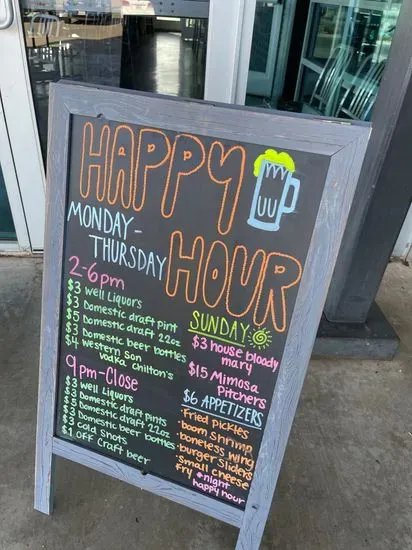 HAPPY
HOUR
MONDAY-
THURSDAY
2-6pm
$3 Well Liquors
$3 Domestic draft pint
$5 Domestic draft 22oz
$3 Domestic beer bottles
$4 Western Son
vodka chilton's
9pm-Close
$3 Well Liquors
$3 Domestic draft pints
$5 Domestic draft 22oz
$3 Domestic beer bottles
$3 Cold Shots
$1 OFF Craft beer
SUNDAY
$3 house bloody
mary
$15 Mimosa
Pitchers
$6 APPETIZERS
• Fried Pickles
• boom Shrimp
• boneless wing
• burger Sliders
• small cheese
fry *night
happy hour